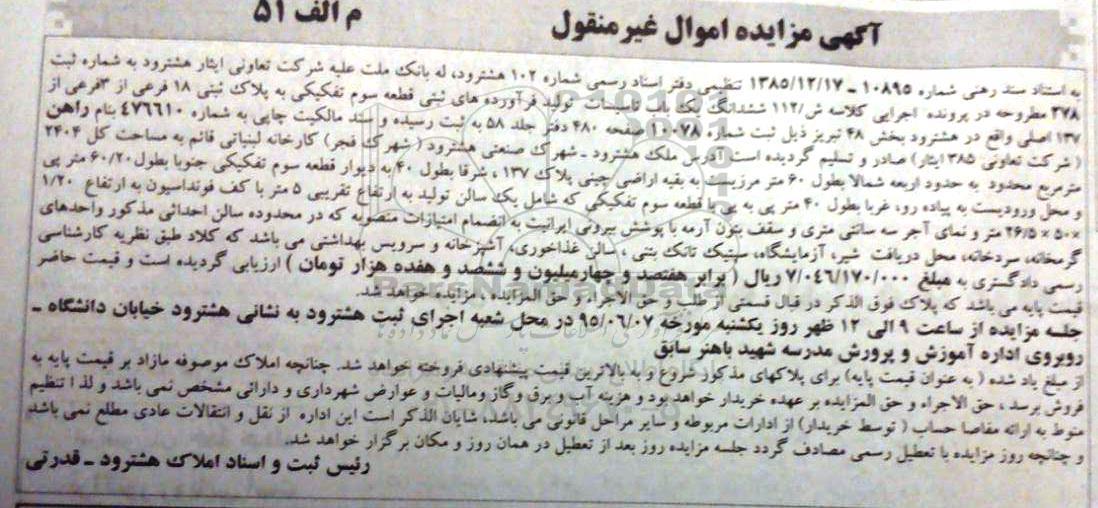 آگهی مزایده اموال غیر منقول
م الف ۵۱
به استناد سند رهنی شماره ۱۰۸۹۵ - ۱۳۸۵/۱۲/۱۷ تنظیمی دفتر اسناد رسمی شماره ۱۰۲ هشترود، له بانک ملت علیه شرکت تعاونی ایثار هشترود به شماره ثبت
۳۷۸ مطروحه در پرونده اجرایی کلاسه ش/۱۱۲ ششدانگ یک باب تاسیسات تولید فرآورده های لبنی قطعه سوم تفکیکی به پلاک ثبتی ۱۸ فرعی از ۳فرعی از
۱۳۷ اصلی واقع در هشترود بخش ۴۸ تبریز ذیل ثبت شماره ۱۰۰۷۸ صفحه ۴۸۰ دفتر جلد ۵۸ به ثبت رسیده و سند مالکیت چاپی به شماره ۴۷۶۶۱۰ بنام راهن
( شرکت تعاونی ۱۳۸۵ ایثار) صادر و تسلیم گردیده است آدرس ملک هشترود ـ شهرک صنعتی هشترود ( شهرک فجر) کارخانه لبنیاتی قائم به مساحت کل ۲۴۰۴
مترمربع محدود به حدود اربعه شمالا بطول ۶۰ متر مرزیست به بقیه اراضی چینی پلاک ۱۳۷ ، شرقا بطول ۴۰ به دیوار قطعه سوم تفکیکی جنوبا بطول ۶۰/۲۰ متر پی
و محل ورودیست به پیاده رو، غربا بطول ۴۰ متر پی به پی با قطعه سوم تفکیکی که شامل یک سالن تولید به ارتفاع تقریبی ۵ متر با کف فونداسیون به ارتفاع ۱/۲۰
×۵۰×۲۶/۵ متر و نمای آجر سه سانتی متری و سقف بتون آرمه با پوشش بیرونی ایرانیت به انضمام امتیازات منصوبه که در محدوده سالن احداثی مذکور واحدهای
گرمخانه، سردخانه، محل دریافت شیر، آزمایشگاه، سپتیک تانک بتنی ، سالن غذاخوری، آشپزخانه و سرویس بهداشتی می باشد که کلاد طبق نظریه کارشناسی
رسمی دادگستری به مبلغ ۷/۰۴۶/۱۷۰/۰۰۰ ریال ( برابر هفتصد و چهارمیلیون و ششصد و هفده هزار تومان ) ارزیابی گردیده است و قیمت حاضر
قیمت پایه می باشد که پلاک فوق الذکر در قبال قسمتی از طلب و حق الاجراء و حق المزایده ، مزایده خواهد شد.
جلسه مزایده از ساعت ۹ الی ۱۲ ظهر روز یکشنبه مورخه ۹۵/۰۶/۰۷ در محل شعبه اجرای ثبت هشترود به نشانی هشترود خیابان دانشگاه ـ
روبروی اداره آموزش و پرورش مدرسه شهید باهنر سابق
از مبلغ یاد شده ( به عنوان قیمت پایه) برای پلاکهای مذکور شروع و به بالاترین قیمت پیشنهادی فروخته خواهد شد. چنانچه املاک موصوفه مازاد بر قیمت پایه به
فروش برسد ، حق الاجراء و حق المزایده بر عهده خریدار خواهد بود و هزینه آب و برق و گاز ومالیات و عوارض شهرداری و دارائی مشخص نمی باشد و لذا تنظیم
منوط به ارائه مفاصا حساب ( توسط خریدار) از ادارات مربوطه و سایر مراحل قانونی می باشد، شایان الذکر است این اداره از نقل و انتقالات عادی مطلع نمی باشد
و چنانچه روز مزایده با تعطیل رسمی مصادف گردد جلسه مزایده روز بعد از تعطیل در همان روز و مکان برگزار خواهد شد.
رئیس ثبت و اسناد املاک هشترود ـ قدرتی